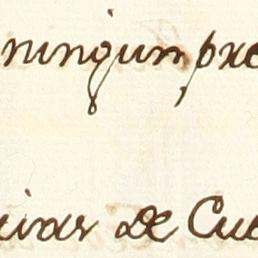 ningun pre
uivar de Cue